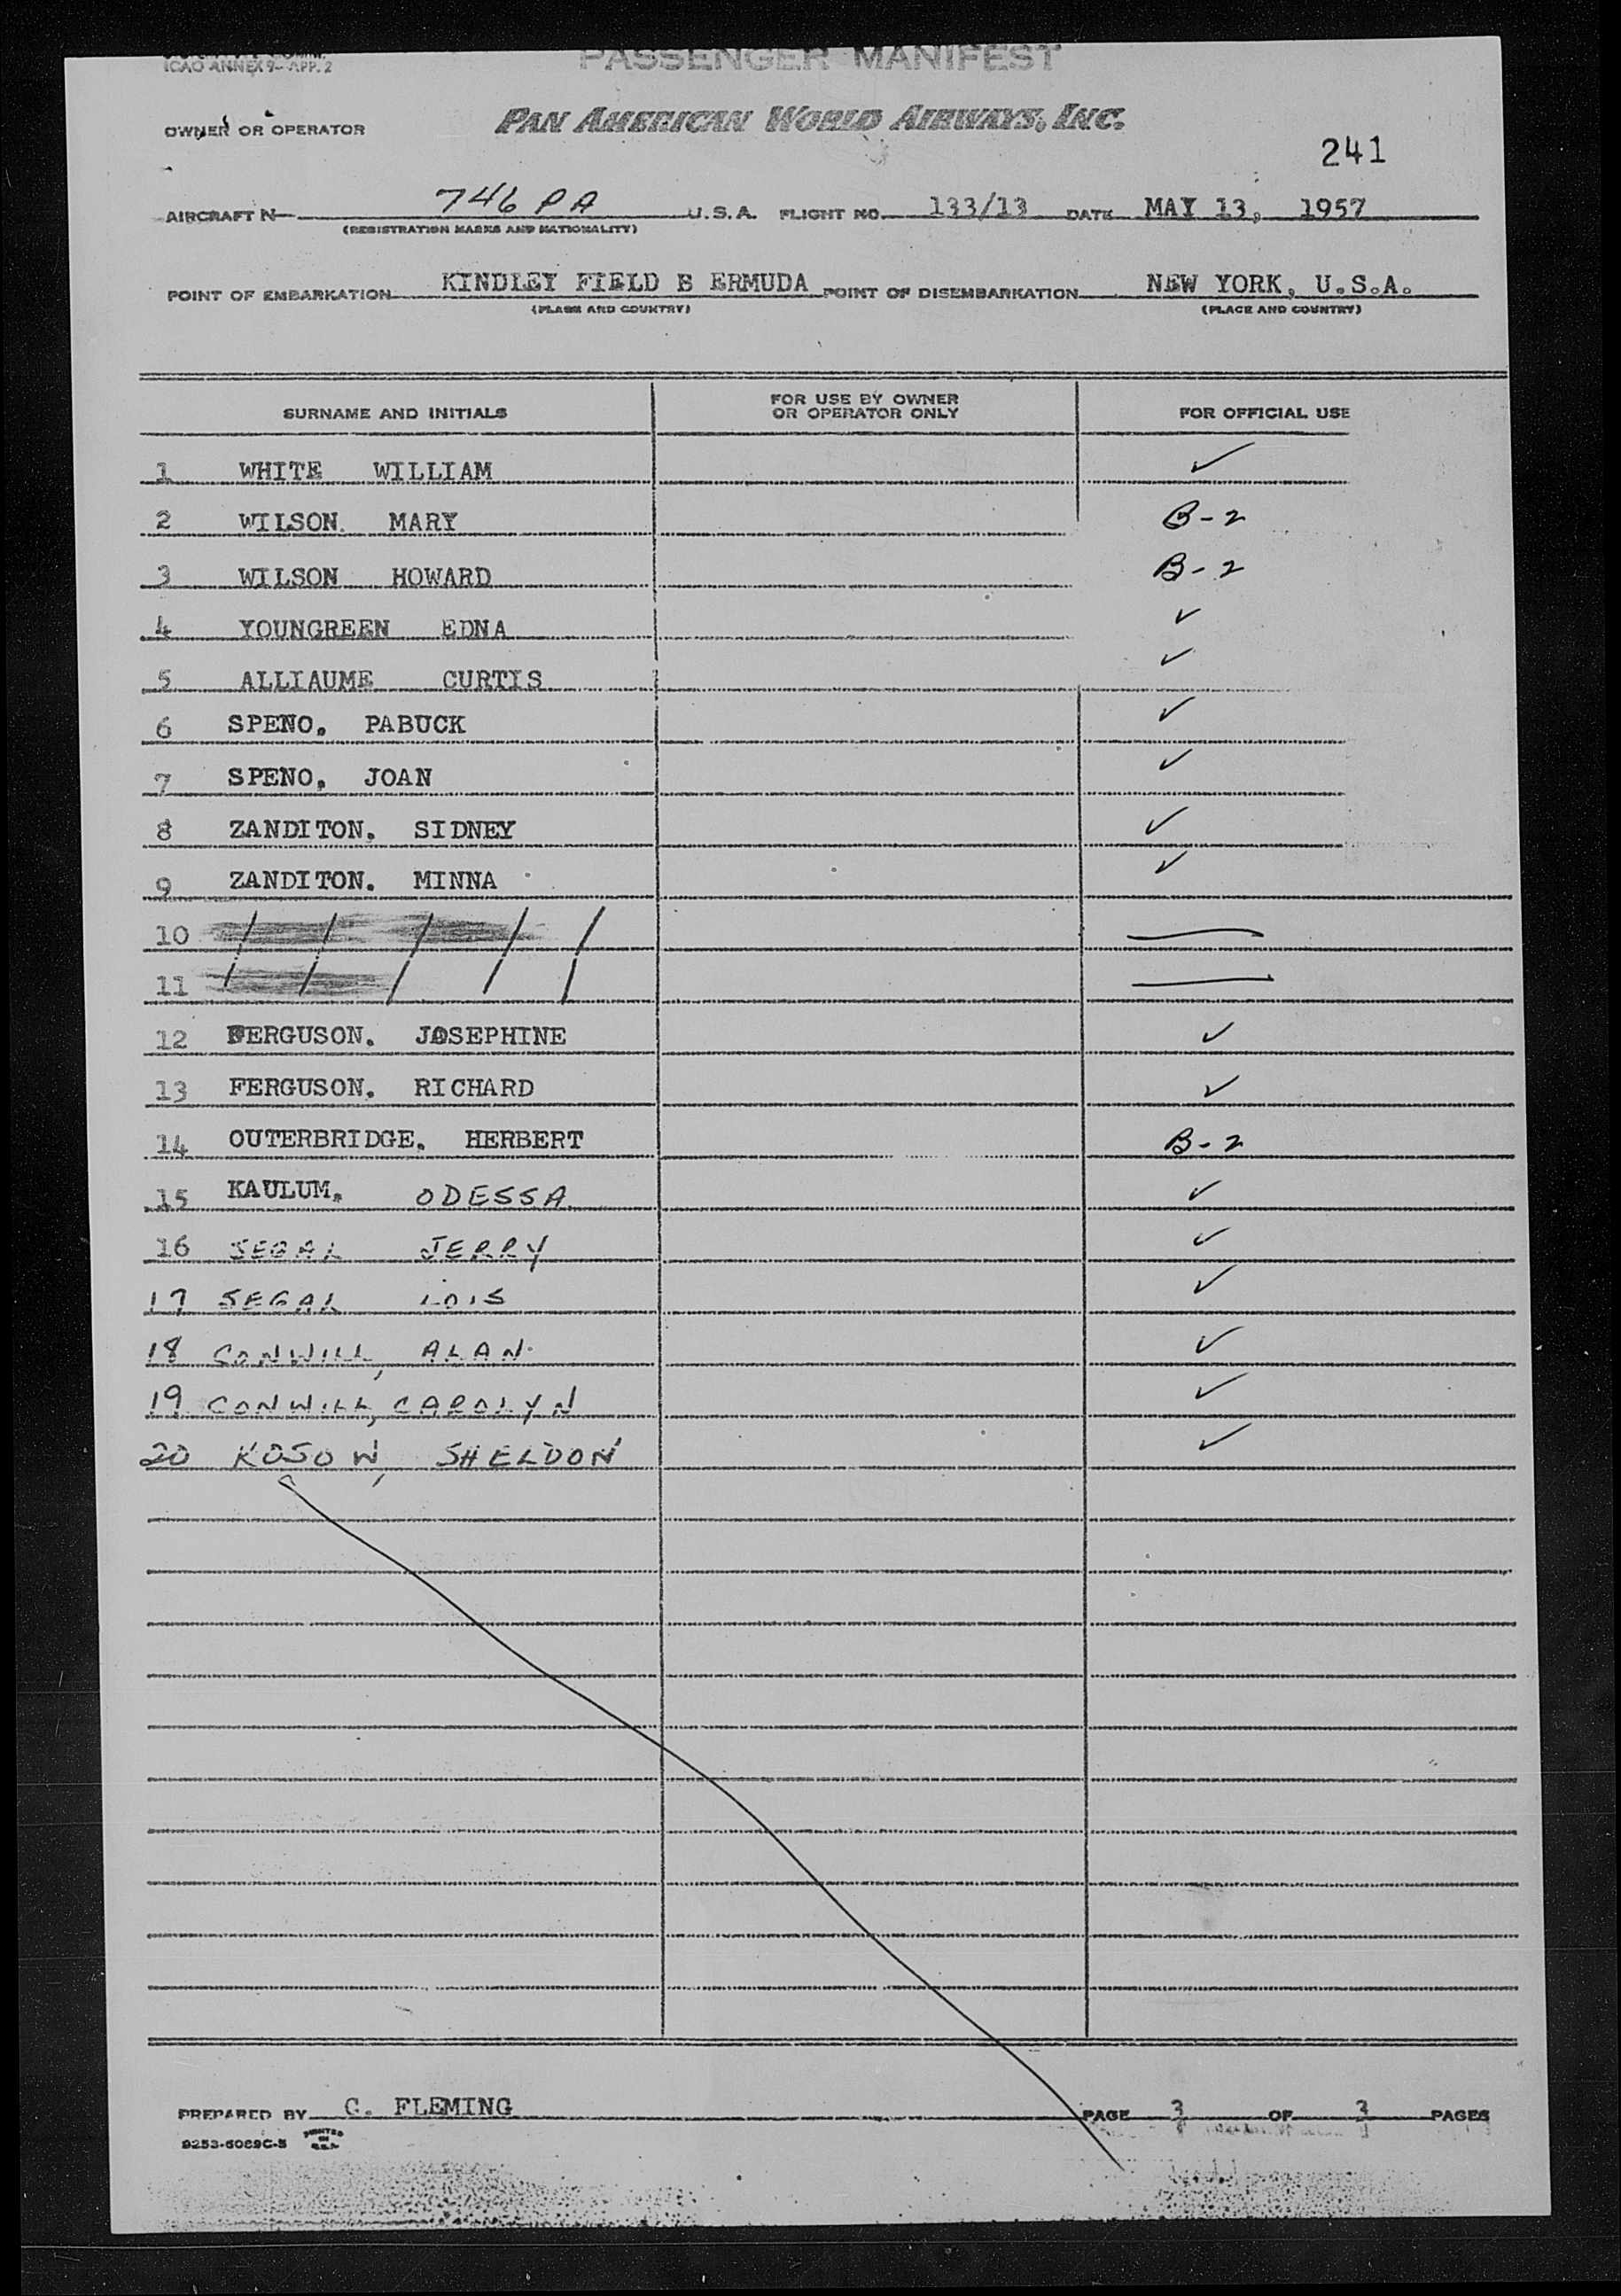 PASSENGER MANIFEST
ICAO ANNEX 9- APP. 2
OWNER OR OPERATOR PAN AMERICAN WORLD AIRWAYS, INC.
241
AIRCRAFT N 746 PA U.S.A. FLIGHT NO. 133/13 DATE MAY 13, 1957
(REGISTRATION MARKS AND NATIONALITY)
POINT OF EMBARKATION KINDLEY FIELD B ERMUDA POINT OF DISEMBARKATION NEW YORK, U.S.A.
(PLACE AND COUNTRY) (PLACE AND COUNTRY)
SURNAME AND INITIALS FOR USE BY OWNER OR OPERATOR ONLY FOR OFFICIAL USE
1 WHITE WILLIAM ✓
2 WILSON. MARY B-2
3 WILSON HOWARD B-2
4 YOUNGREEN EDNA ✓
5 ALLIAUME CURTIS ✓
6 SPENO. PABUCK ✓
7 SPENO. JOAN ✓
8 ZANDITON. SIDNEY ✓
9 ZANDITON. MINNA ✓
10
11
12 FERGUSON. JOSEPHINE ✓
13 FERGUSON. RICHARD ✓
14 OUTERBRIDGE. HERBERT B-2
15 KAULUM. ODESSA ✓
16 SEGAL JERRY ✓
17 SEGAL LOIS ✓
18 CONWILL, ALAN ✓
19 CONWILL, CAROLYN ✓
20 KOSOW, SHELDON ✓
PREPARED BY C. FLEMING PAGE 3 OF 3 PAGES
9253-6089C-5 PRINTED IN U.S.A.